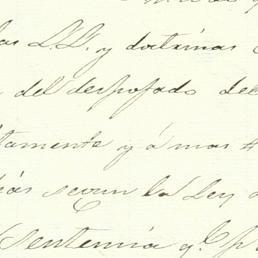 las L.L. y doctrinas
del despojado del
tamente y á mas
dias segun la Ley
sentencia q.e